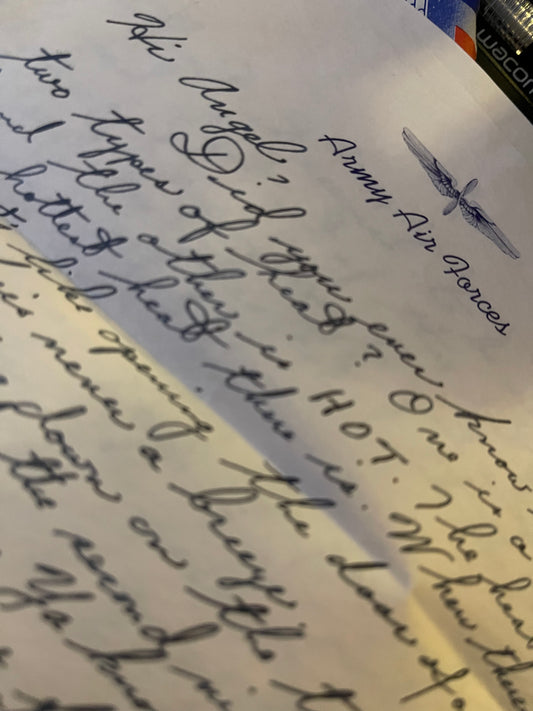 wacom
Army Air Forces
Hi Angel,
Did you ever know
two types of heat? One is a
nd the other is HOT. The hea
hottest heat there is. When
like opening the door of
never a breeze
down on the
the second
Ya kno